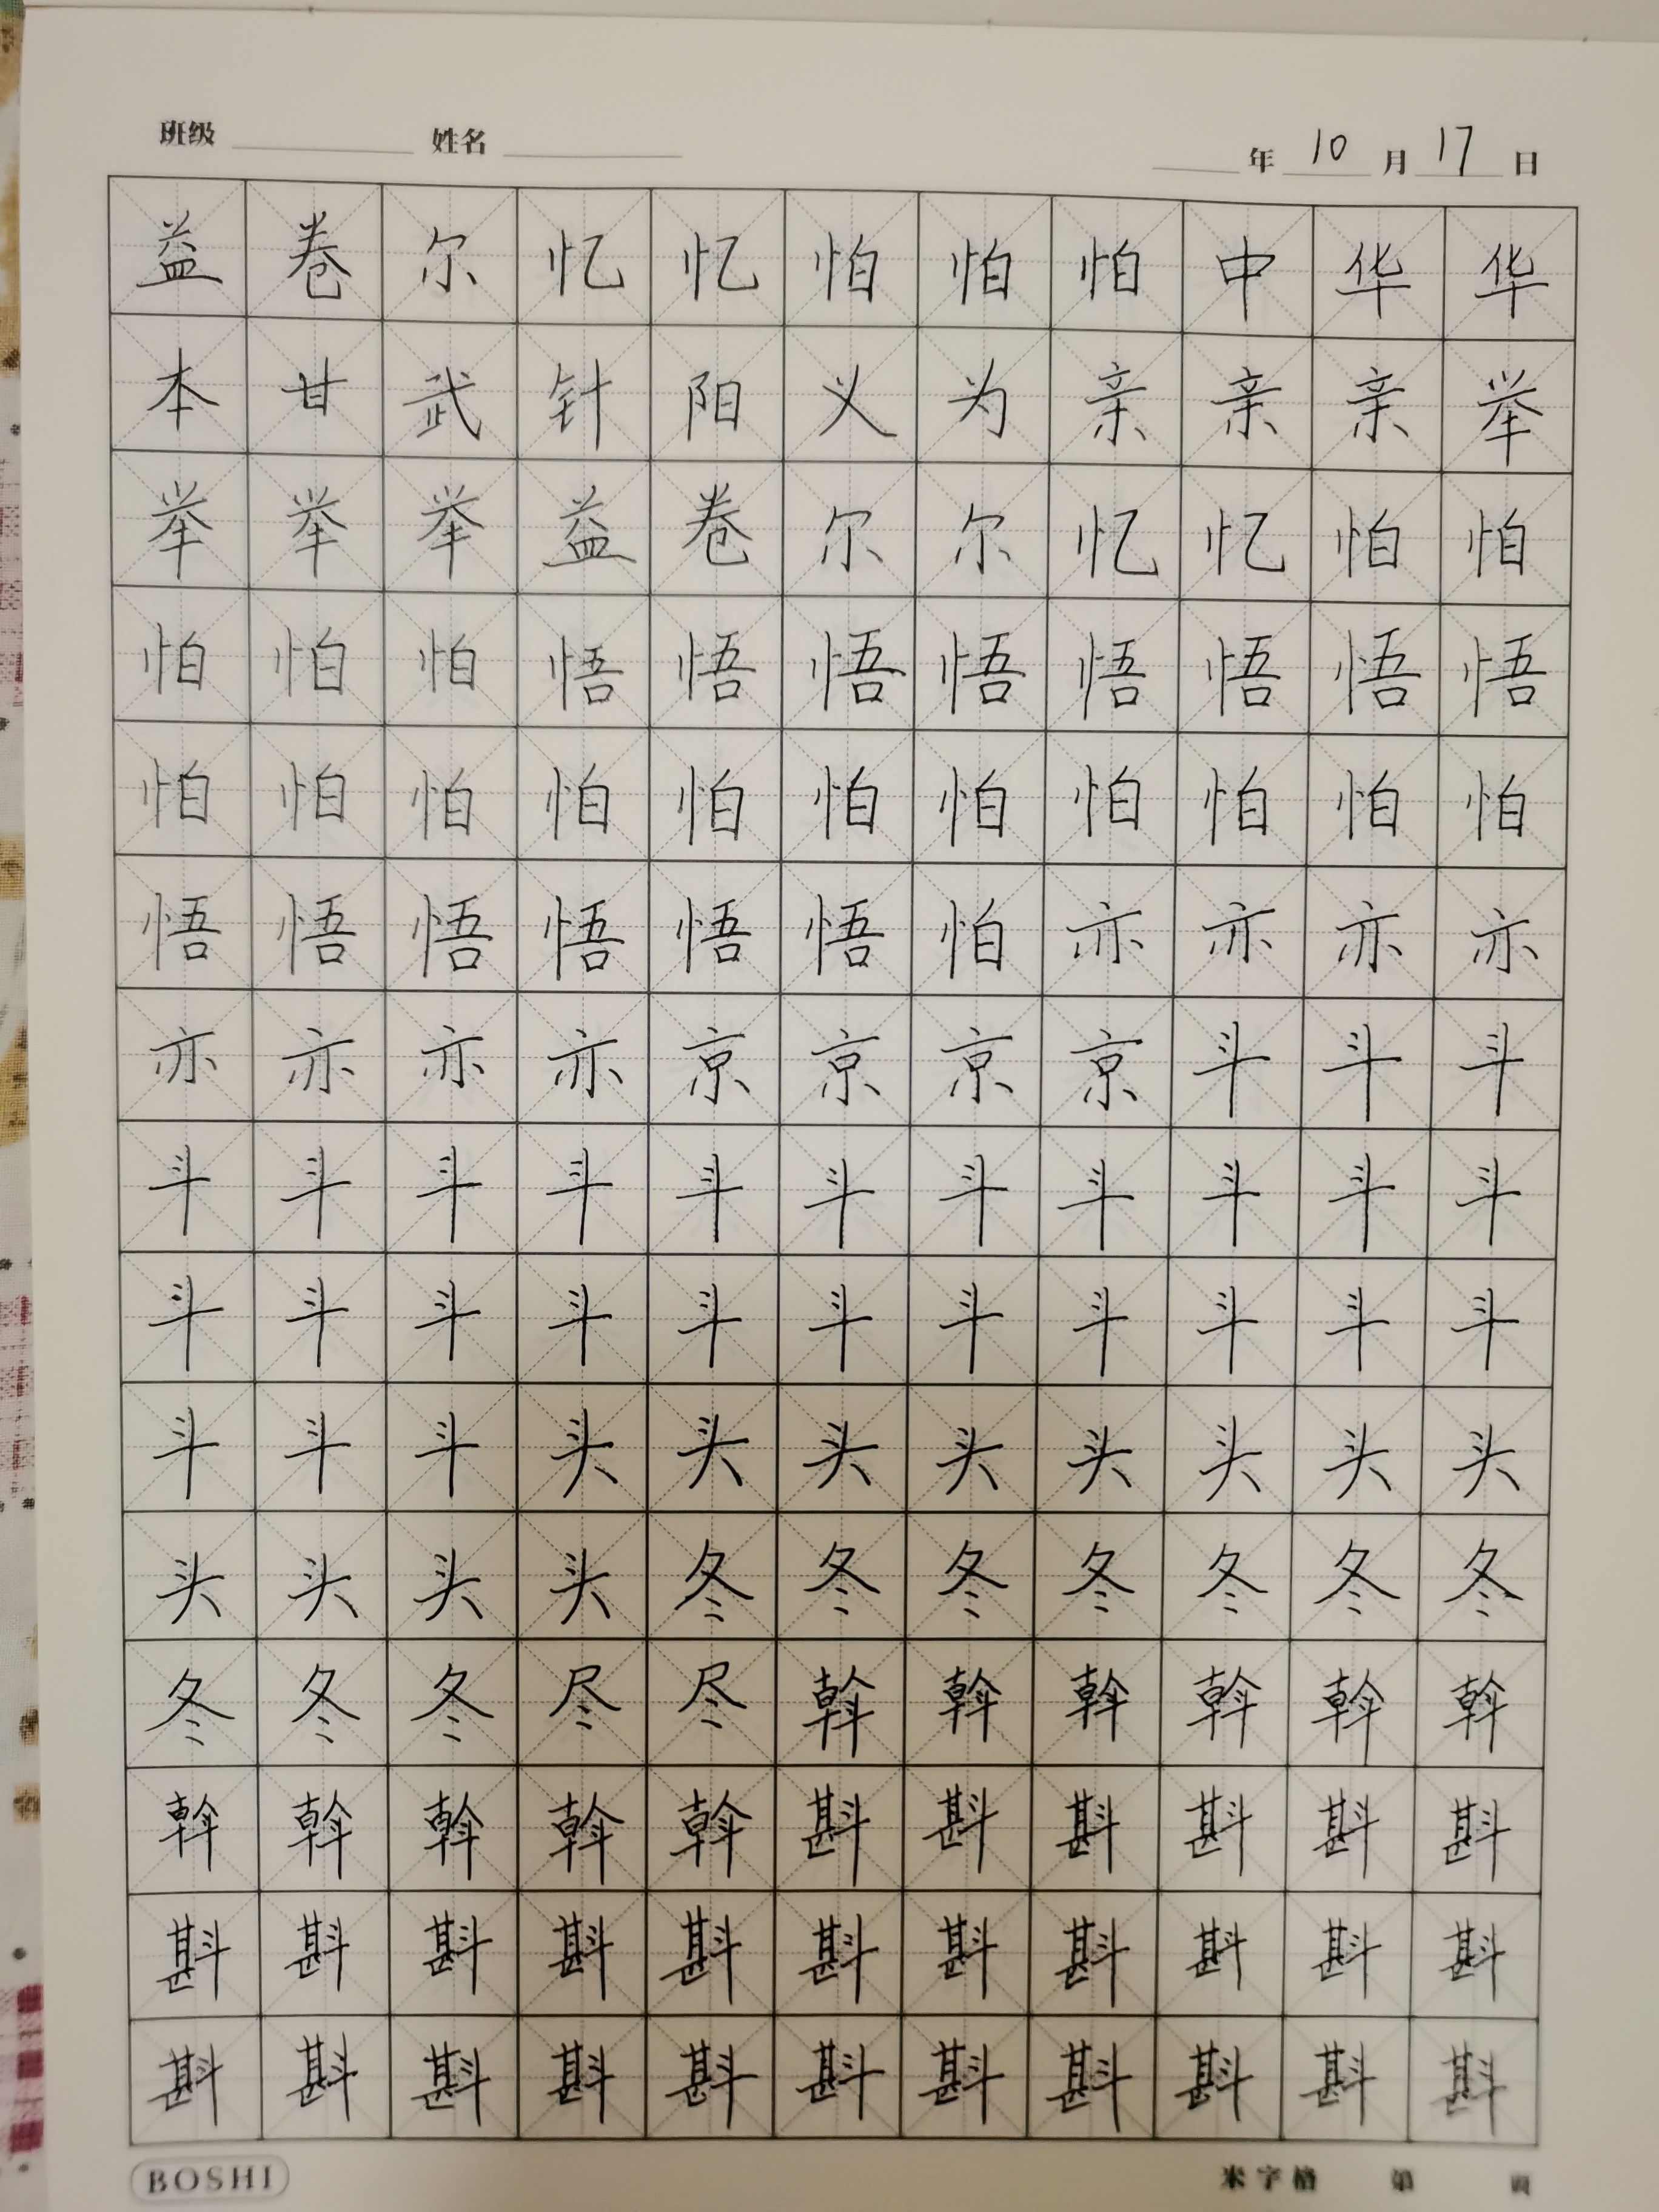 班级 姓名 年 10 月 17 日
益卷尔忆忆怕怕怕中华华
本甘武针阳义为亲亲亲举
举举举益卷尔尔忆忆怕怕
怕怕怕悟悟悟悟悟悟悟悟
怕怕怕怕怕怕怕怕怕怕怕
悟悟悟悟悟悟怕亦亦亦亦
亦亦亦亦京京京京斗斗斗
斗斗斗斗斗斗斗斗斗斗斗
斗斗斗斗斗斗斗斗斗斗斗
斗斗斗头头头头头头头头
头头头头冬冬冬冬冬冬冬
冬冬冬尽尽斡斡斡斡斡斡
斡斡斡斡斡斟斟斟斟斟斟
斟斟斟斟斟斟斟斟斟斟斟
斟斟斟斟斟斟斟斟斟斟斟
BOSHI 米字格 第 页